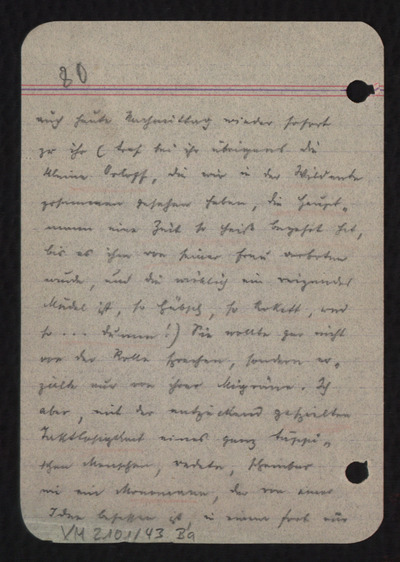 80
auch heute Nachmittag wieder sofort
zu ihr (traf bei ihr übrigens die
kleine Orloff, die wir in der Wildente
zusammen gesehen haben, die Haupt-
mann eine Zeit so heiß begehrt hat,
bis es ihm von seiner Frau verboten
wurde, und die wirklich ein reizendes
Mädel ist, so hübsch, so kokett, und
so ... dumm!) Sie wollte gar nicht
von der Rolle sprechen, sondern er-
zählte nur von ihrer Migräne. Ich
aber, mit der entzückend gespielten
Taktlosigkeit eines ganz täppi-
schen Menschen, redete, scheinbar
wie ein Monomane, der von einer
Idee besessen ist, in einem fort nur
VM 2101/43 Ba